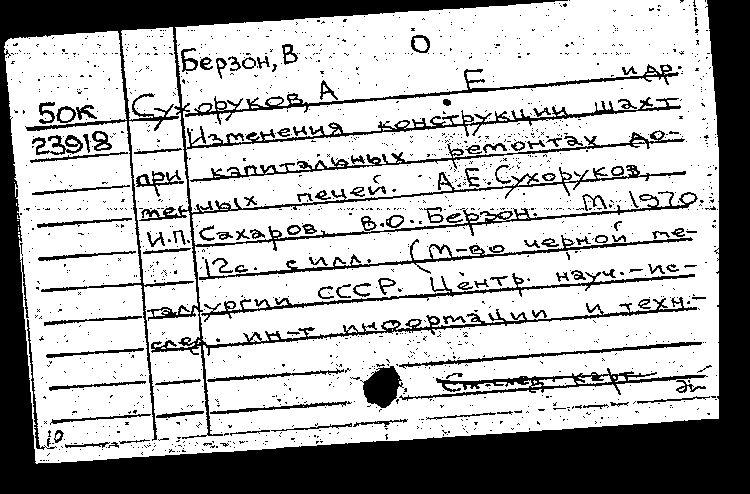 Берзон, В О
Сухоруков, А Е и др.
50К
23918
Изменения конструкции шахт
при капитальных ремонтах до-
менных печей. А.Е. Сухоруков,
И.П. Сахаров, В.О. Берзон. М., 1970.
12с. с илл. (М-во черной ме-
таллургии СССР. Центр. науч.-ис-
след. ин-т информации и техн.-
См. след. карт.
10